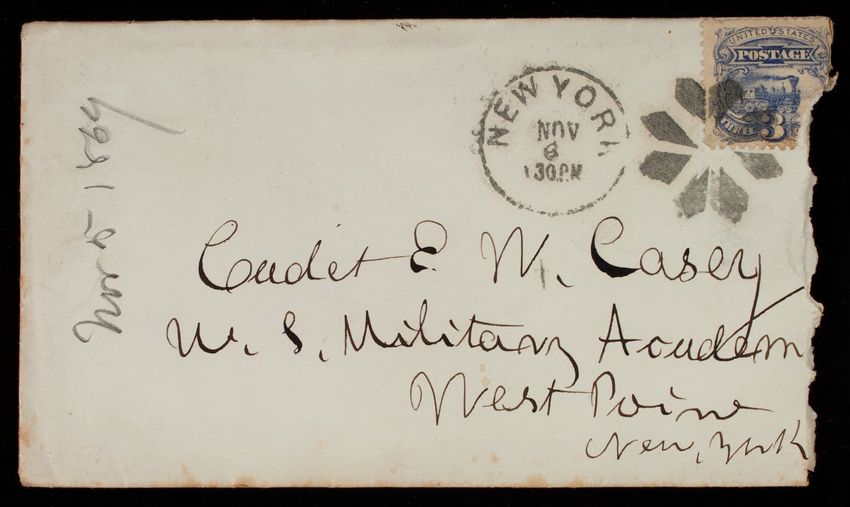 UNITED STATES
POSTAGE
THREE 3
NEW YORK
NOV
6
130 PM
Cadet E. W. Casey
U. S. Military Academ
West Point
New York
Nov 5 1869